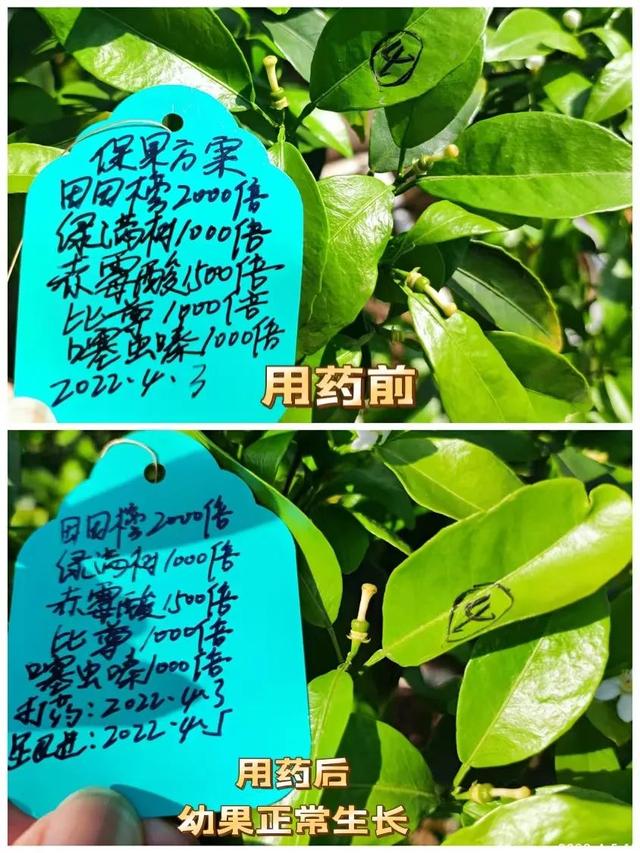 保果方案
田田檸2000倍
绿满树1000倍
赤霉酸1500倍
比尊1000倍
噻虫嗪1000倍
2022.4.3
4
用药前
田田檸2000倍
绿满树1000倍
赤霉酸1500倍
比尊1000倍
噻虫嗪1000倍
打药：2022.4.3
2022.4.5
4
用药后
幼果正常生长